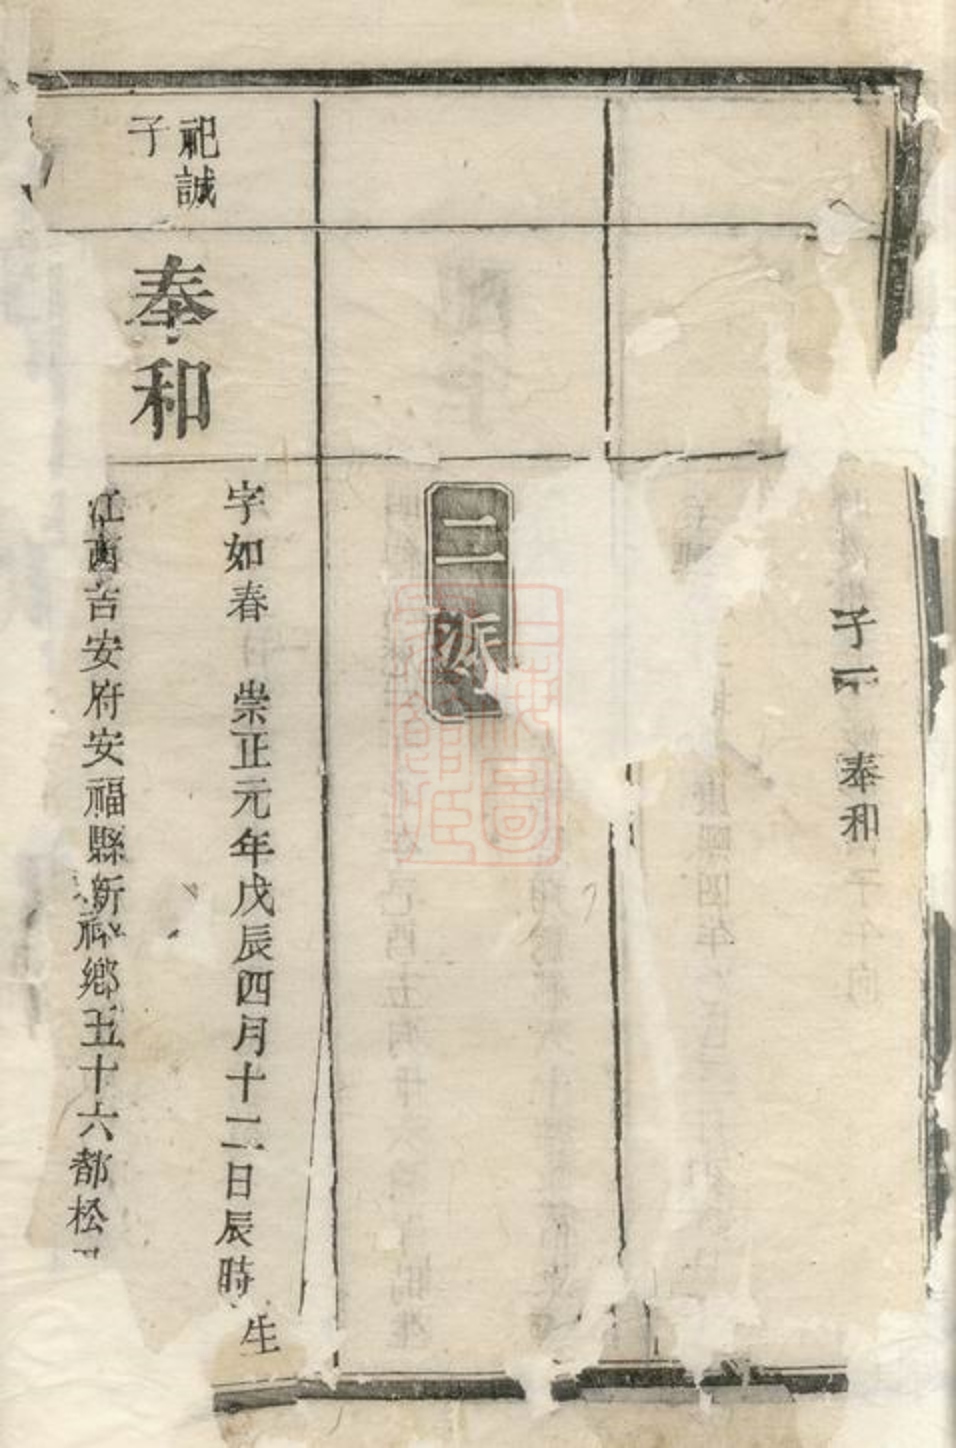 子一
奉和
二派
祀誠
子
奉和
字如春 崇正元年戊辰四月十二日辰時生
江西吉安府安福縣新鄉五十六都松